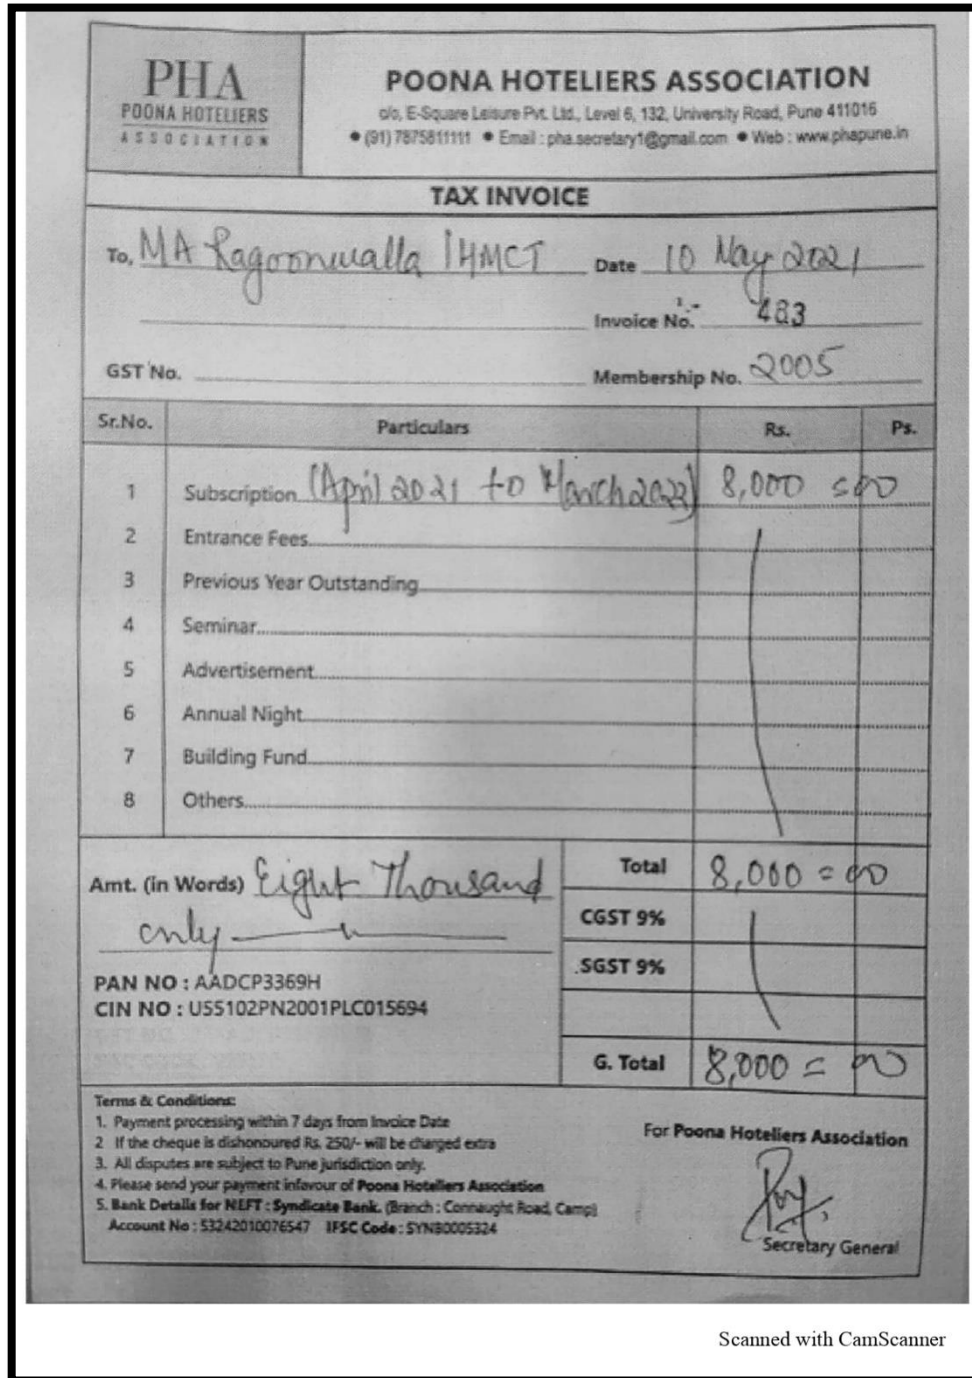 PHA
POONA HOTELIERS
ASSOCIATION
POONA HOTELIERS ASSOCIATION
c/o, E-Square Leisure Pvt. Ltd., Level 6, 132, University Road, Pune 411016
● (91) 7875811111 ● Email : pha.secretary1@gmail.com ● Web : www.phapune.in
TAX INVOICE
To, MA Ragoonwalla IHMCT Date 10 May 2021
Invoice No. 483
GST No. Membership No. 2005
Sr.No. Particulars Rs. Ps.
1 Subscription (April 2021 to March 2022) 8,000 = 00
2 Entrance Fees
3 Previous Year Outstanding
4 Seminar
5 Advertisement
6 Annual Night
7 Building Fund
8 Others
Amt. (in Words) Eight Thousand Total 8,000 = 00
only CGST 9%
SGST 9%
PAN NO : AADCP3369H
CIN NO : U55102PN2001PLC015694
G. Total 8,000 = 00
Terms & Conditions:
1. Payment processing within 7 days from Invoice Date
2 If the cheque is dishonoured Rs. 250/- will be charged extra
3. All disputes are subject to Pune jurisdiction only.
4. Please send your payment infavour of Poona Hoteliers Association
5. Bank Details for NEFT : Syndicate Bank. (Branch : Connaught Road, Camp)
Account No : 53242010076547 IFSC Code : SYNB0005324
For Poona Hoteliers Association
Secretary General
Scanned with CamScanner